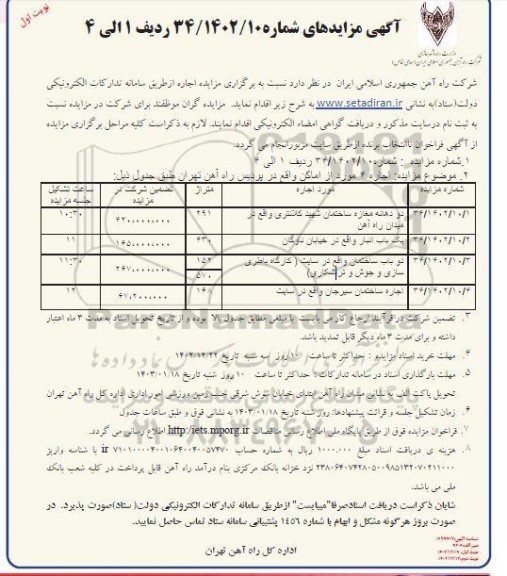 نوبت اول
آگهی مزایدهای شماره ۳۴/۱۴۰۲/۱۰ ردیف ۱ الی ۴
شرکت راه آهن جمهوری اسلامی ایران در نظر دارد نسبت به برگزاری مزایده اجاره ازطریق سامانه تدارکات الکترونیکی
دولت(ستاد)به نشانی www.setadiran.ir به شرح زیر اقدام نماید. مزایده گران موظفند برای شرکت در مزایده نسبت
به ثبت نام درسایت مذکور و دریافت گواهی امضاء الکترونیکی اقدام نمایند. لازم به ذکراست کلیه مراحل برگزاری مزایده
از آگهی فراخوان تاانتخاب برنده ازطریق سایت مزبورانجام می گردد.
۱.شماره مزایده : شماره ۳۴/۱۴۰۲/۱۰ ردیف ۱ الی ۴
۲. موضوع مزایده: اجاره ۴ مورد از اماکن واقع در پردیس راه آهن تهران طبق جدول ذیل:
شماره مزایده | مورد اجاره | متراژ | تضمین شرکت در مزایده | ساعت تشکیل جلسه مزایده
۳۴/۱۴۰۲/۱۰/۱ | دو دهانه مغازه ساختمان شهید کلانتری واقع در میدان راه آهن | ۲۹۱ | ۴۲۰,۰۰۰,۰۰۰ | ۱۰:۳۰
۳۴/۱۴۰۲/۱۰/۲ | یکم باب انبار واقع در خیابان ناوگان | ۶۳۰ | ۱۶۵,۰۰۰,۰۰۰ | ۱۱
۳۴/۱۴۰۲/۱۰/۳ | دو باب ساختمان واقع در سایت ( کارگاه باطری سازی و جوش و تراشکاری) | ۱۵۲ ۵۷۰ | ۲۶۷,۰۰۰,۰۰۰ | ۱۱:۳۰
۳۴/۱۴۰۲/۱۰/۴ | اجاره ساختمان سیرجان واقع در سایت | ۱۶۸ | ۶۷,۲۰۰,۰۰۰ | ۱۲
۳. تضمین شرکت در فرآیند ارجاع کار می بایست با مبلغی مطابق جدول بالا بوده و از تاریخ تحویل اسناد به مدت ۳ ماه اعتبار
داشته و برای مدت ۳ ماه دیگر قابل تمدید باشد.
۴. مهلت خرید اسناد مزایده : حداکثر تا ساعت ۱۰ روز سه شنبه تاریخ ۱۴۰۲/۱۲/۲۲
۵. مهلت بارگذاری اسناد در سامانه تدارکات : حداکثر تا ساعت ۱۰ روز شنبه تاریخ ۱۴۰۳/۰۱/۱۸
تحویل پاکت الف به نشانی میدان راه آهن ابتدای خیابان شوش شرقی جنب زمین ورزشی امور اداری اداره کل راه آهن تهران
۶. زمان تشکیل جلسه و قرائت پیشنهادها: روز شنبه تاریخ ۱۴۰۳/۰۱/۱۸ به نشانی فوق و طبق ساعات جدول
۷. فراخوان مزایده فوق از طریق پایگاه ملی اطلاع رسانی مناقصات http://iets.mporg.ir اطلاع رسانی می گردد.
۸. هزینه ی دریافت اسناد مبلغ ۱,۰۰۰,۰۰۰ ریال به شماره حساب
نزد خزانه بانک مرکزی بنام درآمد راه آهن قابل پرداخت در کلیه شعب بانک
ملی می باشد.
شایان ذکراست دریافت اسنادصرفا"میبایست" ازطریق سامانه تدارکات الکترونیکی دولت( ستاد)صورت پذیرد. در
صورت بروز هرگونه مشکل و ابهام با شماره ۱۴۵۶ پشتیبانی سامانه ستاد تماس حاصل نمایید.
اداره کل راه آهن تهران